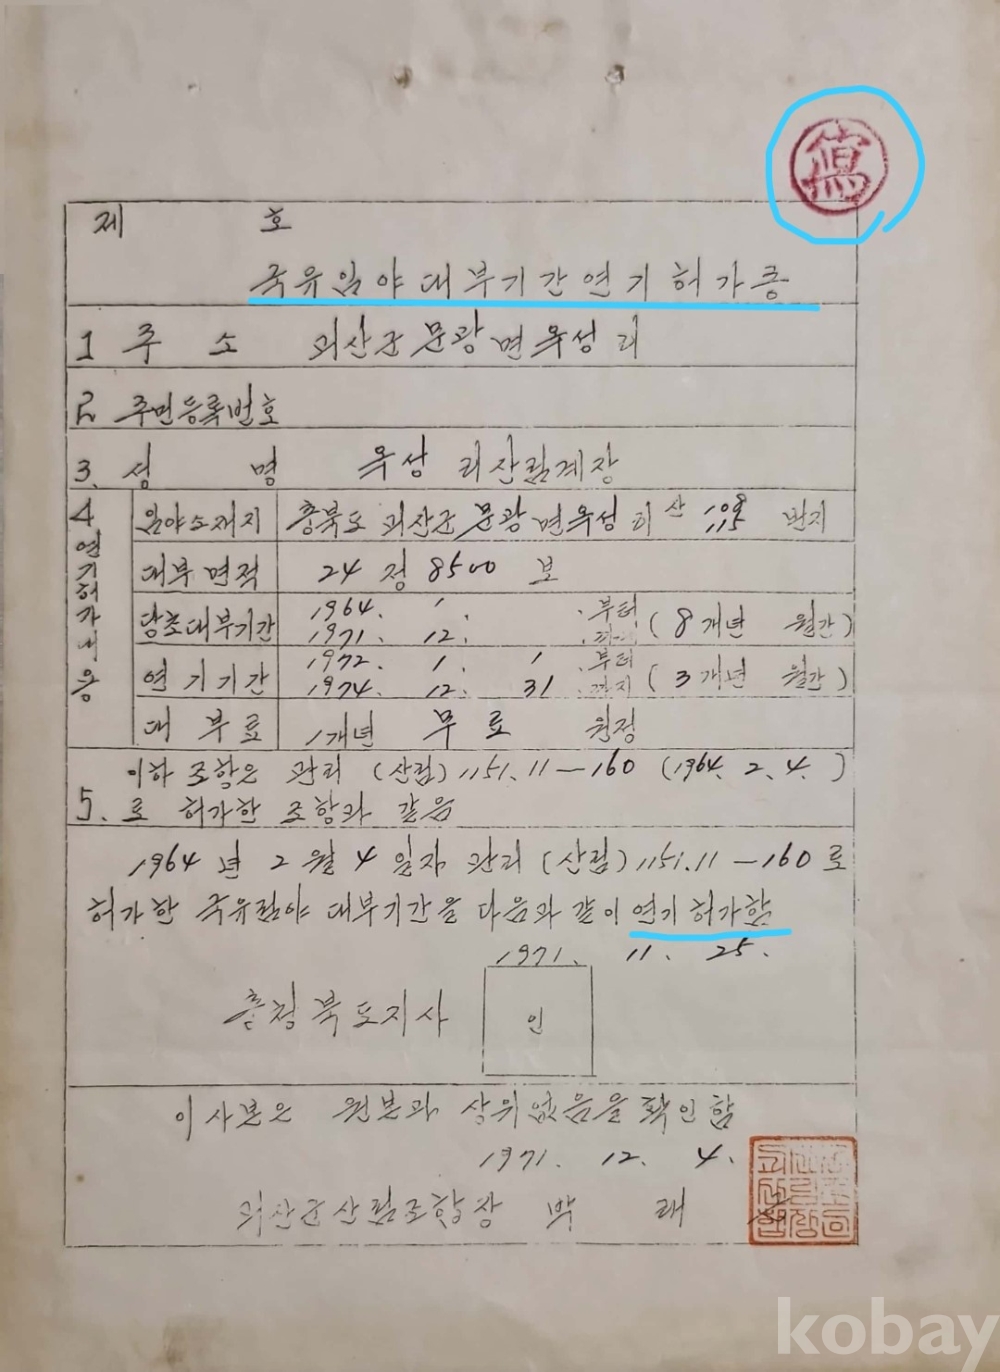 寫
제 호
국유임야대부기간연기허가증
1 주 소 괴산군 문광면옥성리
2 주민등록번호
3. 성 명 옥성리산림계장
4 연기허가내용
임야소재지 충북도 괴산군 문광면옥성리 산 108 115 번지
대부면적 24 정 8500 보
당초대부기간 1964. 1. . 부터
1971. 12. . 까지 ( 8 개년 월간 )
연기기간 1972. 1. 1 . 부터
1974. 12. 31 . 까지 ( 3 개년 월간 )
대부료 1개년 무료 원정
이하 조항은 관리 (산림) 1151.11-160 (1964. 2. 4. )
5. 로 허가한 조항과 같음
1964년 2월 4일자 관리 (산림) 1151.11-160 로
허가한 국유림야 대부기간을 다음과 같이 연기 허가함
1971. 11. 25.
충청북도지사 인
이 사본은 원본과 상위없음을 확인함
1971. 12. 4.
괴산군산림조합장 박 래
kobay